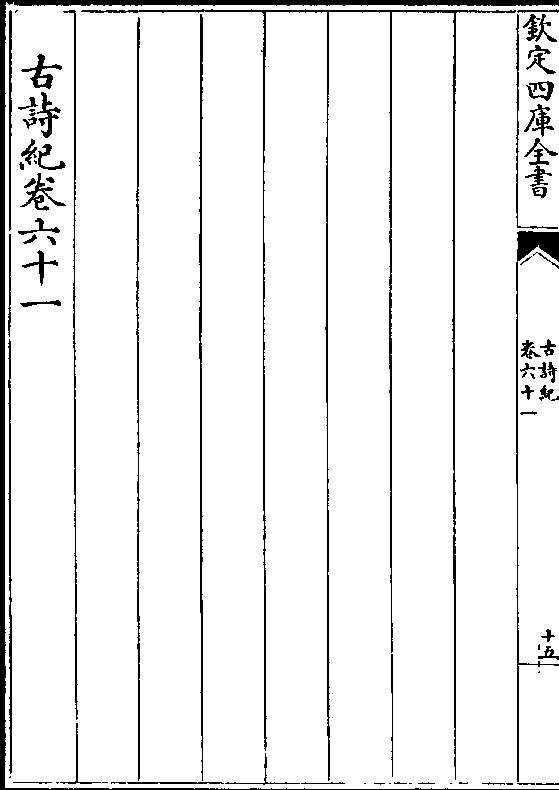 欽定四庫全書
古詩紀
卷六十一
十五
古詩紀卷六十一